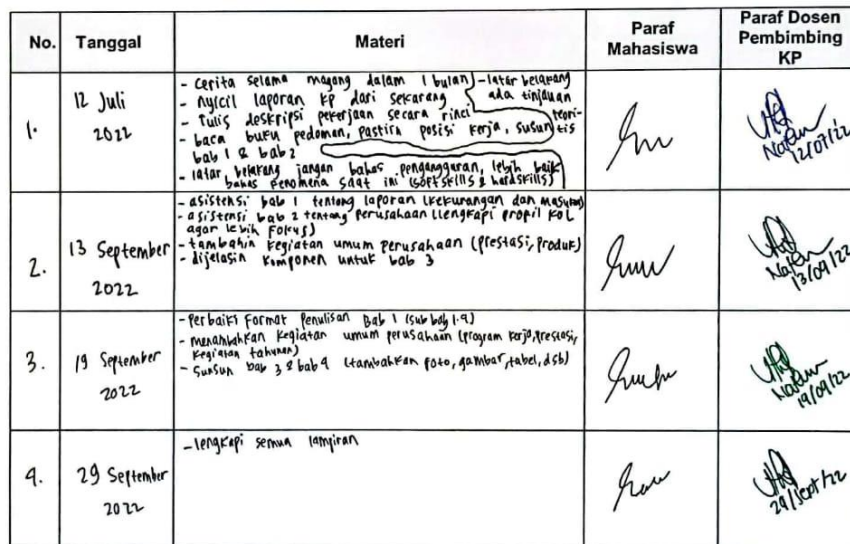 No. Tanggal Materi Paraf Mahasiswa Paraf Dosen Pembimbing KP
1. 12 Juli 2022
- Cerita selama magang dalam 1 bulan
- nyicil laporan KP dari sekarang
- Tulis deskripsi pekerjaan secara rinci
- baca buku pedoman, pastiin posisi kerja, susun
bab 1 & bab 2
- latar belakang ada tinjauan teoritis
- latar belakang jangan bahas pengangguran, lebih baik
bahas fenomena saat ini (softskills & hardskills)
12/07/22
2. 13 September 2022
- asistensi bab 1 tentang laporan (kekurangan dan masukan)
- asistensi bab 2 tentang perusahaan (lengkapi propil KOL
agar lebih fokus)
- tambahin kegiatan umum perusahaan (prestasi, produk)
- dijelasin komponen untuk bab 3
13/09/22
3. 19 September 2022
- Perbaiki format penulisan Bab 1 (sub bab 1.4)
- menambahkan kegiatan umum perusahaan (program kerja, prestasi,
kegiatan tahunan)
- Susun bab 3 & bab 4 (tambahkan foto, gambar, tabel, dsb)
19/09/22
4. 29 September 2022
- lengkapi semua lampiran
29/Sept/22